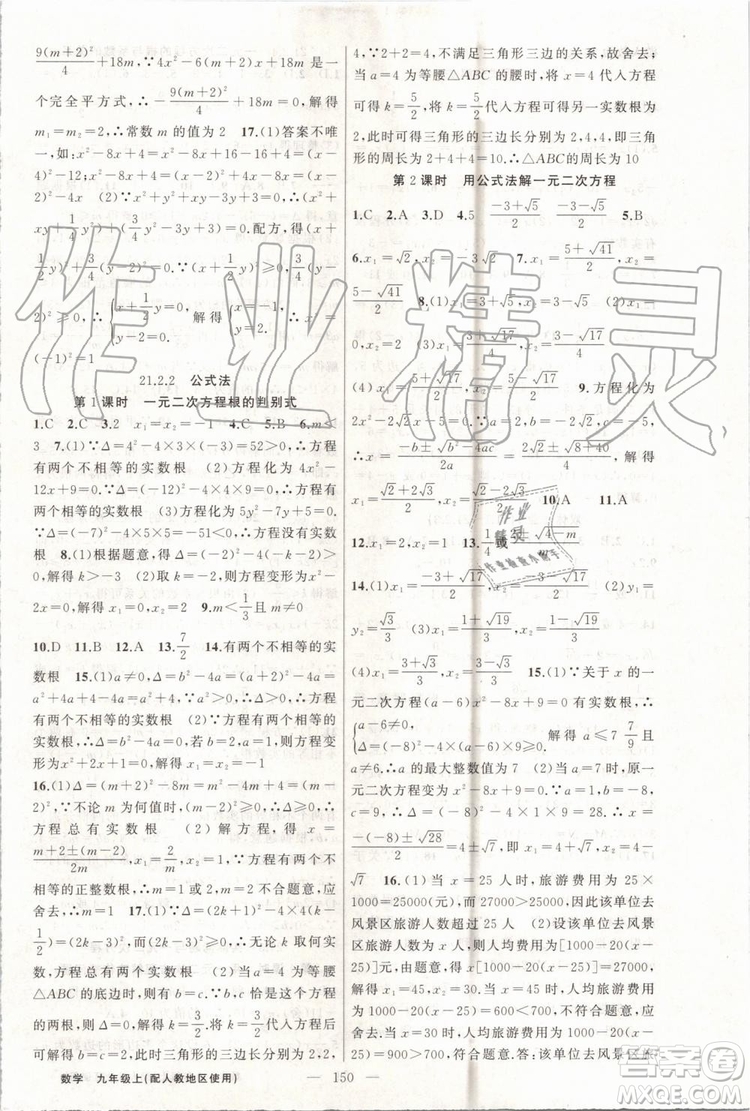 9(m+2)²/4+18m,∵4x²-6(m+2)x+18m 是一
个完全平方式,∴-9(m+2)²/4+18m=0,解得
m₁=m₂=2,∴常数 m 的值为 2 17.(1)答案不唯
一,如:x²-8x+4=x²-8x+16-16+4=(x-
4)²-12 (2)x²+y²+xy-3y+3=0,(x²+
xy+1/4y²)+3/4(y²-4y+4)=0.配方,得(x+
1/2y)²+3/4(y-2)²=0.又∵(x+1/2y)²≥0,(y-
2)²≥0,∴{x+1/2y=0, y-2=0. 解得{x=-1, y=2. ∴x^y=
(-1)²=1
21.2.2 公式法
第 1 课时 一元二次方程根的判别式
1.C 2.D 3.2 x₁=x₂=-1 4.C 5.B 6.m≤
3 7.(1)∵Δ=4²-4×3×(-3)=52>0,∴方程
有两个不相等的实数根 (2)方程化为 4x²-
12x+9=0.∵Δ=(-12)²-4×4×9=0,∴方程
有两个相等的实数根 (3)方程化为 5y²-7y+5=0,
∵Δ=(-7)²-4×5×5=-51<0,∴方程没有实
数根 8.(1)根据题意,得 Δ=(-4)²-4(3-k)>0,
解得 k>-1 (2)将 k=0 代入方程,则方程变形为 x²-4x+
3=0,解得 x₁=1,x₂=3 9.m<1/3且 m≠0
10.D 11.B 12.A 13.7/2 14.有两个不相等的实
数根 15.(1)a≠0,Δ=b²-4a=(a+2)²-4a=
a²+4a+4-4a=a²+4.∵a²>0,∴Δ>0,∴方程
有两个不相等的实数根 (2)∵方程有两个相等
的实数根,∴Δ=b²-4a=0,若 b=2,a=1,则方程
变形为 x²+2x+1=0,解得 x₁=x₂=-1
16.(1)∵m≠0,Δ=(m+2)²-4m×2=(m-
2)²≥0,∴不论 m 为何值时,方程总有实数根,∴
方程总有实数根 (2)解方程得,x=
m+2±(m-2)/2m,x₁=2/m,x₂=1,∵方程有两个不相
等的正整数根,∴m=1 或 2,m=2 不合题意,应
舍去,∴m=1 17.(1)∵Δ=(2k+1)²-4×4(k-
1/2)=(2k-3)²,(2k-3)²≥0,∴无论 k 取何实
数,方程总有两个实数根 (2)当 a=4 为等腰
△ABC 的底边时,则有 b=c.∵b、c 恰是这个方
程的两根,则 k=3/2,将 k=3/2代入方程后可
解得 b=c=2,则三角形的三边长分别为 2,2,
4,∵2+2=4,不满足三角形三边的关系,故舍去;
当 a=4 为等腰△ABC 的腰时,将 x=4 代入方程
可得 k=5/2,将 k=5/2代入方程可得另一实数根为
2,此时可得三角形的三边长分别为 2,4,4,即三角
形的周长为 2+4+4=10.∴△ABC的周长为 10
第 2 课时 用公式法解一元二次方程
1.C 2.A 3.D 4.5 -3+√5/2 -3-√5/2 5.B
6.x₁=√2,x₂=-√2 7.x₁=5+√41/2,x₂=
5-√41/2 8.(1)x₁=3+√5,x₂=3-√5 (2)x₁=
(3)x₁=3+√17/4,x₂=3-√17/4
(4)x₁=-3+√17/2,x₂=-3-√17/2
2x²-√2x-1=0.∵a=2,b=-√2,c=-1,
∴x=-b±√b²-4ac/2a=, 解得
x₁=√2+2√3/4,x₂=√2-2√3/4 10.A 11.A
12.x₁=2,x₂=-1 13.1/4
14.(1)x₁=-3+√17/2,x₂=-3-√17/2 (2)y₁=
y₂=√3/3 (3)x₁=-1+√19/3,x₂=-1-√19/3
(4)x₁=3+√3/3,x₂=3-√3/3 15.(1)∵关于 x 的一
元二次方程(a-6)x²-8x+9=0 有实数根,∴
{a-6≠0, Δ=(-8)²-4×(a-6)×9≥0. 解得 a≤7 7/9且
a≠6.∴a 的最大整数值为 7 (2)当 a=7 时,原一
元二次方程变为 x²-8x+9=0.∵a=1,b=-8,
c=9,∴Δ=(-8)²-4×1×9=28.∴x=
-(-8)±√28/2,即 x₁=4+√7,x₂=4-
√7 16.(1)当 x=25 人时,旅游费用为 25×
1000=25000(元)<27000(元),∴该单位去
风景区旅游人数超过 25 人 (2)设该单位去风景
区旅游人数为 x 人,则人均费用为[1000-20(x-
25)]元,由题意,得 x[1000-20(x-25)]=27000,
解得 x₁=45,x₂=30,当 x=45 时,人均旅游费用
为1000-20(x-25)=600<700,不合题意,应
舍去,当 x=30 时,人均旅游费用为 1000-20(x-
25)=900>700,符合题意.则该单位去风景区
旅游人数为 30 人
作业精灵
作业精灵
作业检查小助手
答案圈
MXQE.COM
数学 九年级上(配人教地区使用)
— 150 —